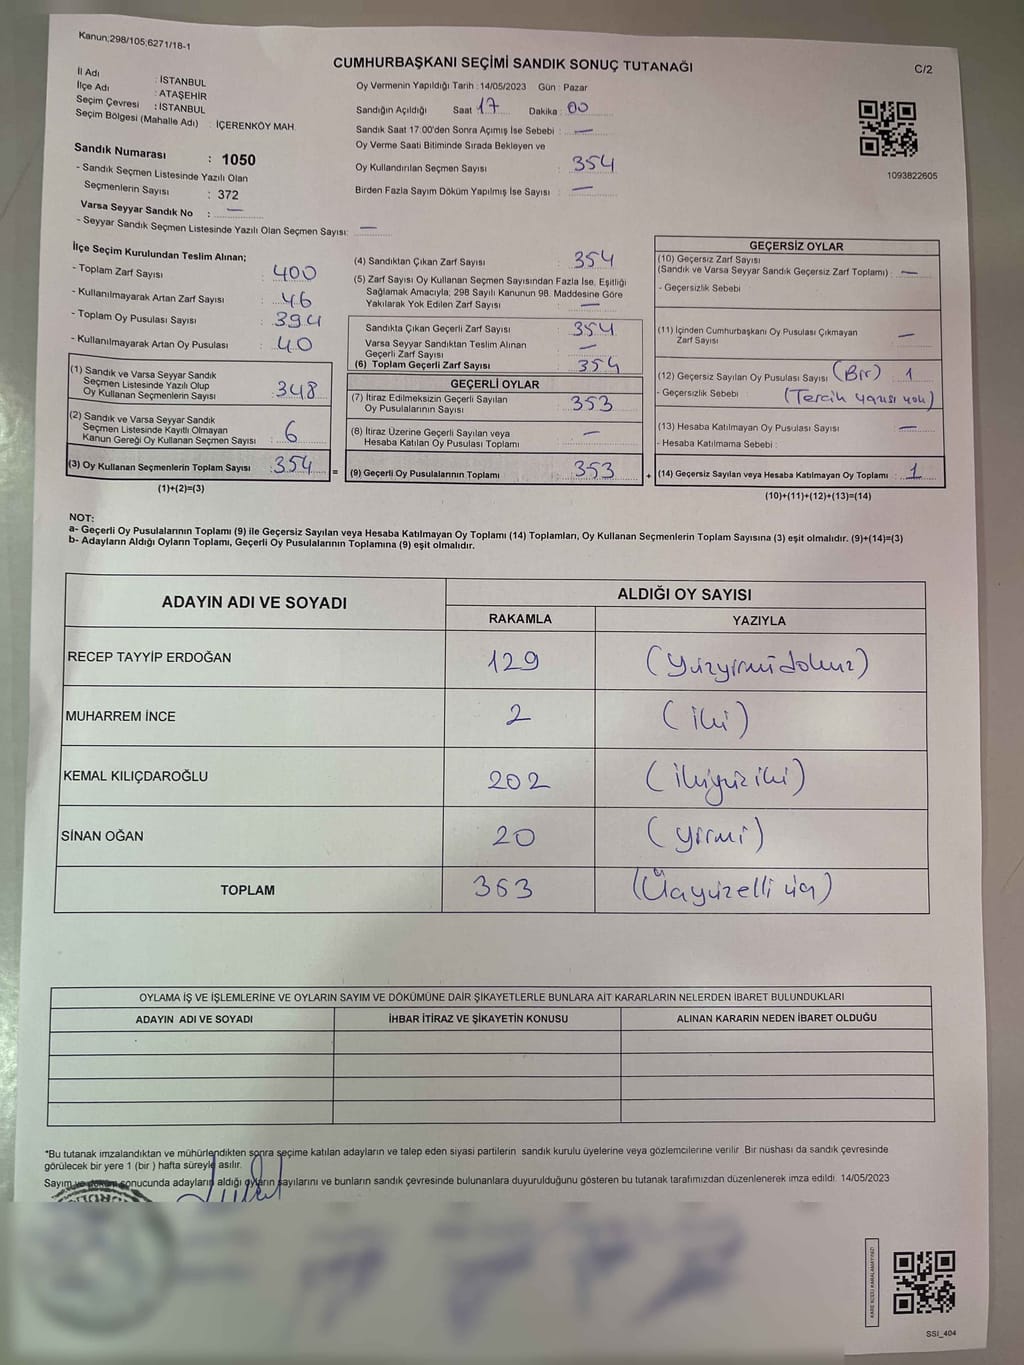 Kanun;298/105;6271/18-1
CUMHURBAŞKANI SEÇİMİ SANDIK SONUÇ TUTANAĞI
C/2
İl Adı : İSTANBUL
İlçe Adı : ATAŞEHİR
Seçim Çevresi : İSTANBUL
Seçim Bölgesi (Mahalle Adı) : İÇERENKÖY MAH.
Oy Vermenin Yapıldığı Tarih : 14/05/2023 Gün : Pazar
Sandığın Açıldığı Saat 17 Dakika : 00
Sandık Saat 17:00'den Sonra Açımış İse Sebebi : —
Oy Verme Saati Bitiminde Sırada Bekleyen ve
Oy Kullandırılan Seçmen Sayısı : 354
Birden Fazla Sayım Döküm Yapılmış İse Sayısı : —
1093822605
Sandık Numarası : 1050
- Sandık Seçmen Listesinde Yazılı Olan
Seçmenlerin Sayısı : 372
Varsa Seyyar Sandık No : —
- Seyyar Sandık Seçmen Listesinde Yazılı Olan Seçmen Sayısı: —
İlçe Seçim Kurulundan Teslim Alınan;
- Toplam Zarf Sayısı : 400
- Kullanılmayarak Artan Zarf Sayısı : 46
- Toplam Oy Pusulası Sayısı : 394
- Kullanılmayarak Artan Oy Pusulası : 40
(1) Sandık ve Varsa Seyyar Sandık
Seçmen Listesinde Yazılı Olup
Oy Kullanan Seçmenlerin Sayısı : 348
(2) Sandık ve Varsa Seyyar Sandık
Seçmen Listesinde Kayıtlı Olmayan
Kanun Gereği Oy Kullanan Seçmen Sayısı : 6
(3) Oy Kullanan Seçmenlerin Toplam Sayısı : 354
(1)+(2)=(3)
(4) Sandıktan Çıkan Zarf Sayısı : 354
(5) Zarf Sayısı Oy Kullanan Seçmen Sayısından Fazla İse, Eşitliği
Sağlamak Amacıyla; 298 Sayılı Kanunun 98. Maddesine Göre
Yakılarak Yok Edilen Zarf Sayısı : —
Sandıkta Çıkan Geçerli Zarf Sayısı : 354
Varsa Seyyar Sandıktan Teslim Alınan
Geçerli Zarf Sayısı : —
(6) Toplam Geçerli Zarf Sayısı : 354
GEÇERLİ OYLAR
(7) İtiraz Edilmeksizin Geçerli Sayılan
Oy Pusulalarının Sayısı : 353
(8) İtiraz Üzerine Geçerli Sayılan veya
Hesaba Katılan Oy Pusulası Toplamı : —
= (9) Geçerli Oy Pusulalarının Toplamı : 353 +
GEÇERSİZ OYLAR
(10) Geçersiz Zarf Sayısı
(Sandık ve Varsa Seyyar Sandık Geçersiz Zarf Toplamı) : —
- Geçersizlik Sebebi :
(11) İçinden Cumhurbaşkanı Oy Pusulası Çıkmayan
Zarf Sayısı : —
(12) Geçersiz Sayılan Oy Pusulası Sayısı : (Bir) 1
- Geçersizlik Sebebi : (Tercih yazısı yok)
(13) Hesaba Katılmayan Oy Pusulası Sayısı : —
- Hesaba Katılmama Sebebi :
(14) Geçersiz Sayılan veya Hesaba Katılmayan Oy Toplamı : 1
(10)+(11)+(12)+(13)=(14)
NOT:
a- Geçerli Oy Pusulalarının Toplamı (9) ile Geçersiz Sayılan veya Hesaba Katılmayan Oy Toplamı (14) Toplamları, Oy Kullanan Seçmenlerin Toplam Sayısına (3) eşit olmalıdır. (9)+(14)=(3)
b- Adayların Aldığı Oyların Toplamı, Geçerli Oy Pusulalarının Toplamına (9) eşit olmalıdır.
ADAYIN ADI VE SOYADI
ALDIĞI OY SAYISI
RAKAMLA YAZIYLA
RECEP TAYYİP ERDOĞAN 129 (Yüzyirmidokuz)
MUHARREM İNCE 2 (iki)
KEMAL KILIÇDAROĞLU 202 (ikiyüziki)
SİNAN OĞAN 20 (yirmi)
TOPLAM 353 (Üçyüzelli üç)
OYLAMA İŞ VE İŞLEMLERİNE VE OYLARIN SAYIM VE DÖKÜMÜNE DAİR ŞİKAYETLERLE BUNLARA AİT KARARLARIN NELERDEN İBARET BULUNDUKLARI
ADAYIN ADI VE SOYADI İHBAR İTİRAZ VE ŞİKAYETİN KONUSU ALINAN KARARIN NEDEN İBARET OLDUĞU
*Bu tutanak imzalandıktan ve mühürlendikten sonra seçime katılan adayların ve talep eden siyasi partilerin sandık kurulu üyelerine veya gözlemcilerine verilir. Bir nüshası da sandık çevresinde
görülecek bir yere 1 (bir ) hafta süreyle asılır.
Sayım ve döküm sonucunda adayların aldığı oyların sayılarını ve bunların sandık çevresinde bulunanlara duyurulduğunu gösteren bu tutanak tarafımızdan düzenlenerek imza edildi. 14/05/2023
KARE KODU KARALAMAYINIZ!
SSI_404